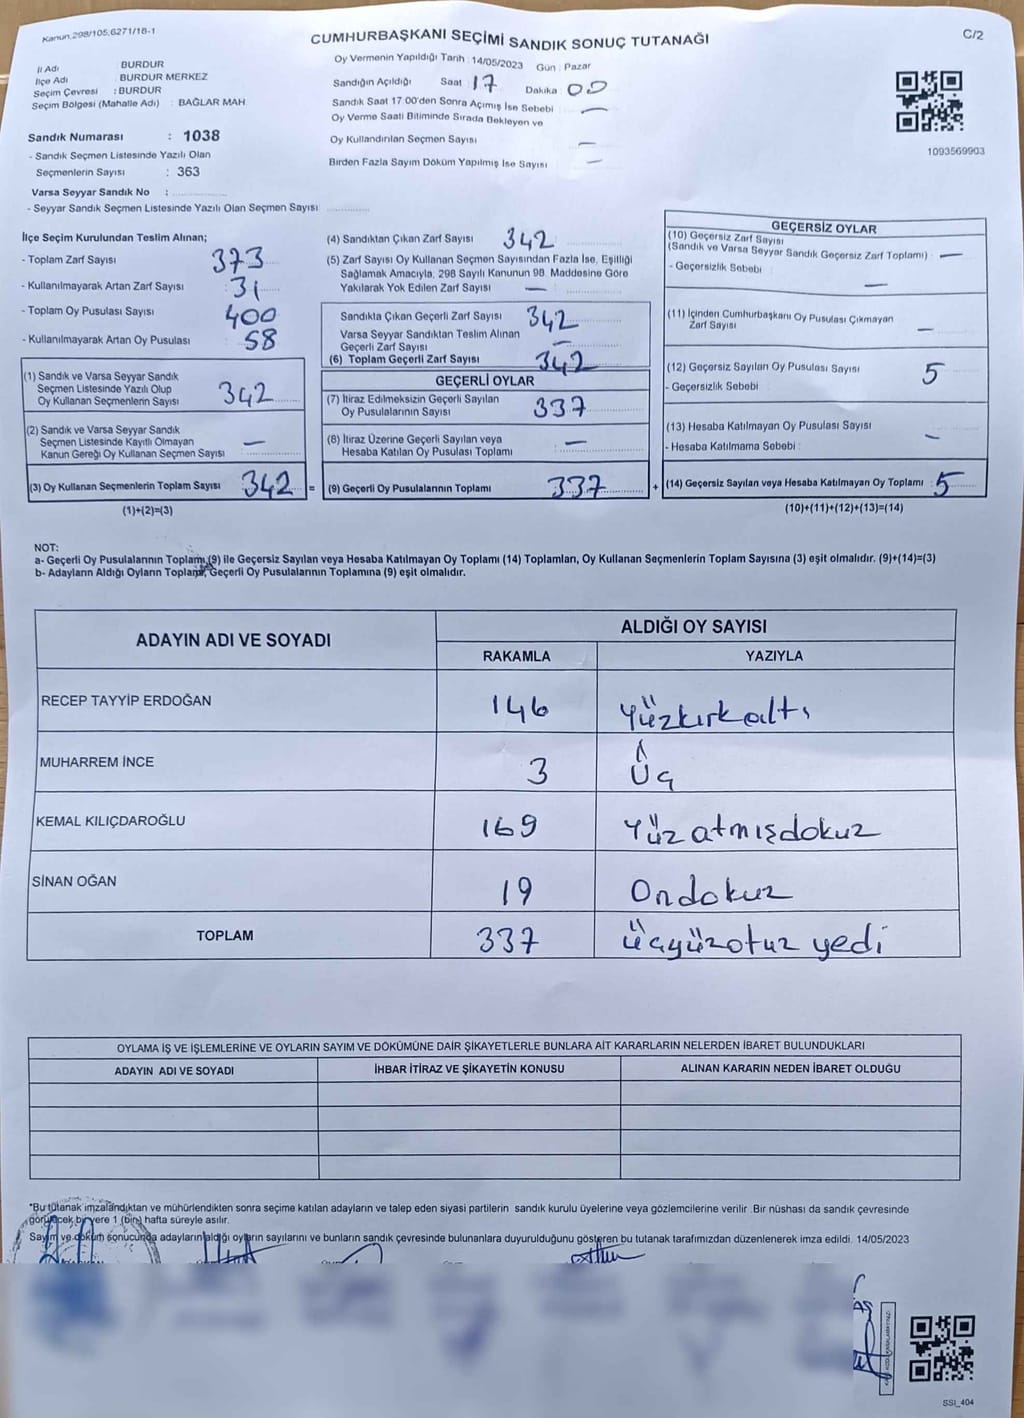 Kanun.298/105,6271/18-1
CUMHURBAŞKANI SEÇİMİ SANDIK SONUÇ TUTANAĞI
C/2
İl Adı : BURDUR
İlçe Adı : BURDUR MERKEZ
Seçim Çevresi : BURDUR
Seçim Bölgesi (Mahalle Adı) : BAĞLAR MAH.
Sandık Numarası : 1038
- Sandık Seçmen Listesinde Yazılı Olan
Seçmenlerin Sayısı : 363
Varsa Seyyar Sandık No :
- Seyyar Sandık Seçmen Listesinde Yazılı Olan Seçmen Sayısı
Oy Vermenin Yapıldığı Tarih : 14/05/2023 Gün : Pazar
Sandığın Açıldığı Saat : 17 Dakika 00
Sandık Saat 17:00'den Sonra Açımış İse Sebebi : —
Oy Verme Saati Bitiminde Sırada Bekleyen ve
Oy Kullandırılan Seçmen Sayısı —
Birden Fazla Sayım Döküm Yapılmış İse Sayısı —
1093569903
İlçe Seçim Kurulundan Teslim Alınan;
- Toplam Zarf Sayısı 373
- Kullanılmayarak Artan Zarf Sayısı : 31
- Toplam Oy Pusulası Sayısı 400
- Kullanılmayarak Artan Oy Pusulası : 58
(1) Sandık ve Varsa Seyyar Sandık
Seçmen Listesinde Yazılı Olup
Oy Kullanan Seçmenlerin Sayısı 342
(2) Sandık ve Varsa Seyyar Sandık
Seçmen Listesinde Kayıtlı Olmayan
Kanun Gereği Oy Kullanan Seçmen Sayısı —
(3) Oy Kullanan Seçmenlerin Toplam Sayısı 342 =
(1)+(2)=(3)
(4) Sandıktan Çıkan Zarf Sayısı 342
(5) Zarf Sayısı Oy Kullanan Seçmen Sayısından Fazla İse, Eşitliği
Sağlamak Amacıyla, 298 Sayılı Kanunun 98. Maddesine Göre
Yakılarak Yok Edilen Zarf Sayısı : —
Sandıkla Çıkan Geçerli Zarf Sayısı : 342
Varsa Seyyar Sandıktan Teslim Alınan
Geçerli Zarf Sayısı : —
(6) Toplam Geçerli Zarf Sayısı 342
GEÇERLİ OYLAR
(7) İtiraz Edilmeksizin Geçerli Sayılan
Oy Pusulalarının Sayısı 337
(8) İtiraz Üzerine Geçerli Sayılan veya
Hesaba Katılan Oy Pusulası Toplamı : —
(9) Geçerli Oy Pusulalarının Toplamı 337 +
GEÇERSİZ OYLAR
(10) Geçersiz Zarf Sayısı
(Sandık ve Varsa Seyyar Sandık Geçersiz Zarf Toplamı) : —
- Geçersizlik Sebebi : —
(11) İçinden Cumhurbaşkanı Oy Pusulası Çıkmayan
Zarf Sayısı : —
(12) Geçersiz Sayılan Oy Pusulası Sayısı 5
- Geçersizlik Sebebi
(13) Hesaba Katılmayan Oy Pusulası Sayısı : —
- Hesaba Katılmama Sebebi :
(14) Geçersiz Sayılan veya Hesaba Katılmayan Oy Toplamı : 5
(10)+(11)+(12)+(13)=(14)
NOT:
a- Geçerli Oy Pusulalarının Toplamı (9) ile Geçersiz Sayılan veya Hesaba Katılmayan Oy Toplamı (14) Toplamları, Oy Kullanan Seçmenlerin Toplam Sayısına (3) eşit olmalıdır. (9)+(14)=(3)
b- Adayların Aldığı Oyların Toplamı, Geçerli Oy Pusulalarının Toplamına (9) eşit olmalıdır.
ADAYIN ADI VE SOYADI
ALDIĞI OY SAYISI
RAKAMLA YAZIYLA
RECEP TAYYİP ERDOĞAN 146 Yüzkırkaltı
MUHARREM İNCE 3 Üç
KEMAL KILIÇDAROĞLU 169 Yüzatmışdokuz
SİNAN OĞAN 19 Ondokuz
TOPLAM 337 üçyüzotuz yedi
OYLAMA İŞ VE İŞLEMLERİNE VE OYLARIN SAYIM VE DÖKÜMÜNE DAİR ŞİKAYETLERLE BUNLARA AİT KARARLARIN NELERDEN İBARET BULUNDUKLARI
ADAYIN ADI VE SOYADI İHBAR İTİRAZ VE ŞİKAYETİN KONUSU ALINAN KARARIN NEDEN İBARET OLDUĞU
*Bu tutanak imzalandıktan ve mühürlendikten sonra seçime katılan adayların ve talep eden siyasi partilerin sandık kurulu üyelerine veya gözlemcilerine verilir. Bir nüshası da sandık çevresinde
görülecek bir yere 1 (bir) hafta süreyle asılır.
Sayım ve döküm sonucunda adayların aldığı oyların sayılarını ve bunların sandık çevresinde bulunanlara duyurulduğunu gösteren bu tutanak tarafımızdan düzenlenerek imza edildi. 14/05/2023
SSI_404